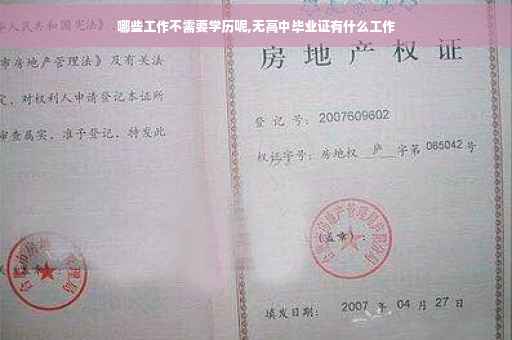 哪些工作不需要学历呢,无高中毕业证有什么工作
人民共和国宪法》及
市房地产管理法》及有关法
定,对权利人申请登记本证所
审查属实,准予登记,特发此
房地产权证
登记号:2007609602
权证字号:房地权 庐 字第 065042 号
(盖章):
房地产管理局
填发日期:2007 年 04 月 27 日